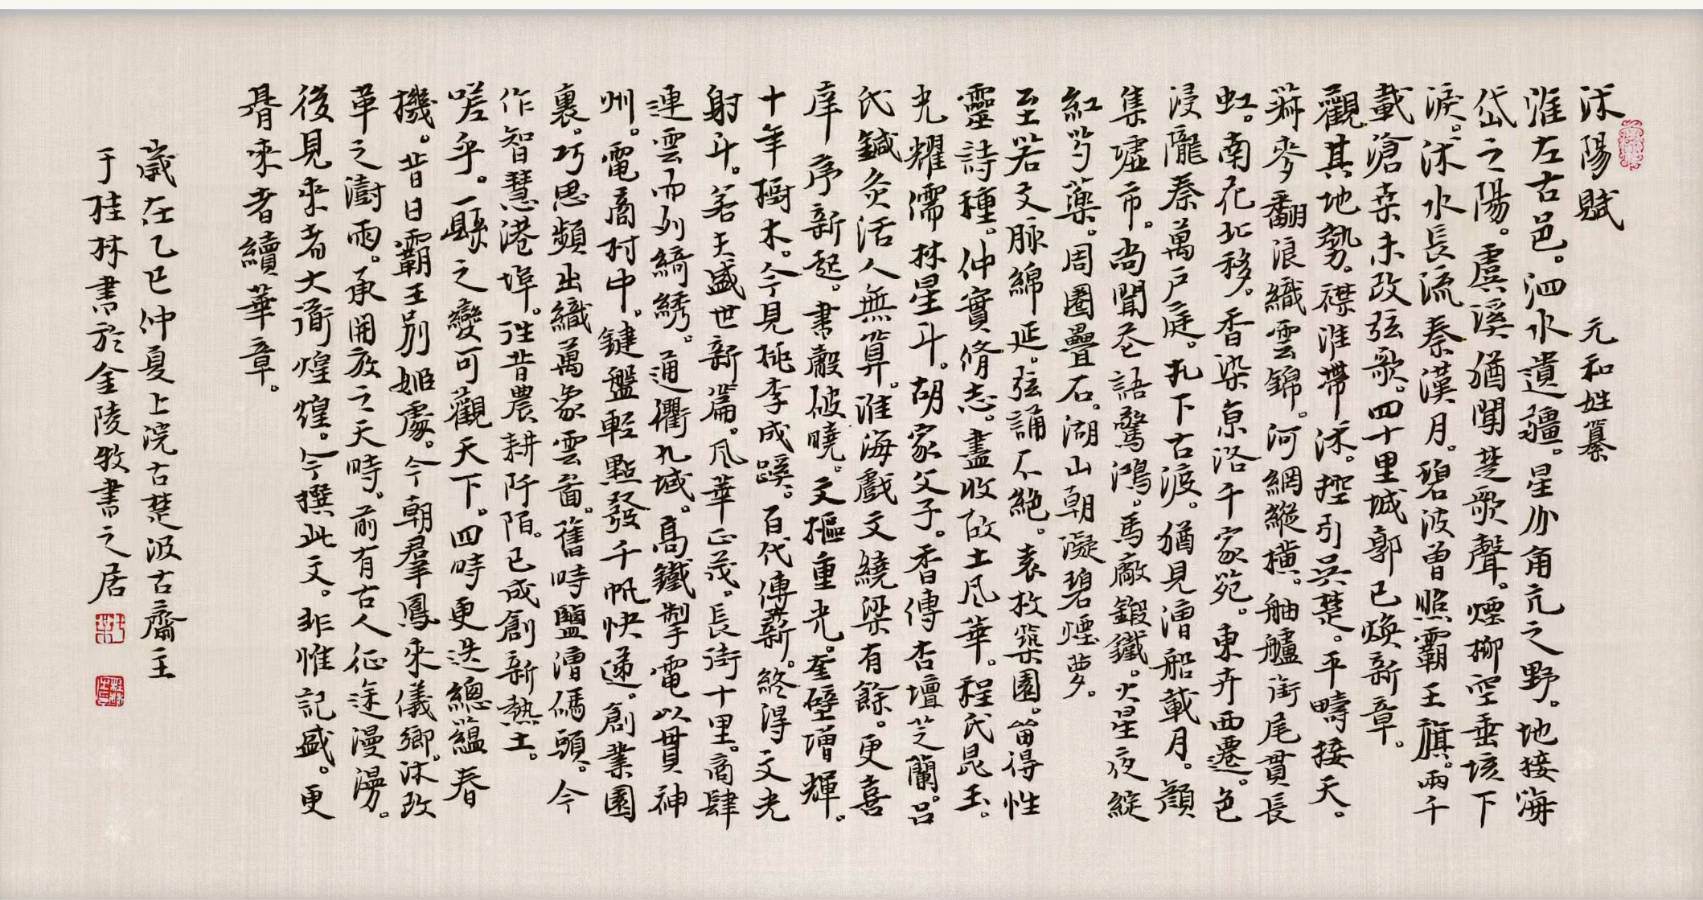 沭陽賦 元和姓纂
淮左古邑。泗水遺疆。星分角亢之野。地接海
岱之陽。虞溪猶聞楚歌聲。煙柳空垂垓下
淚。沭水長流秦漢月。碧波曾照霸王旗。兩千
載滄桑未改弦歌。四十里城郭已煥新章。
觀其地勢。襟淮帶沭。控引吳楚。平疇接天。
麥翻浪織雲錦。河網縱橫。舳艫銜尾貫長
虹。南花北移。香染京洛千家苑。東卉西遷。色
浸隴秦萬戶庭。扎下古渡。猶見漕船載月。顏
集墟市。尚聞叵語驚鴻。馬廠鍛鐵。火星夜綻
紅芍藥。周圈疊石。湖山朝凝碧煙夢。
至若文脈綿延。弦誦不絕。袁枚築園。留得性
靈詩種。仲實脩志。盡收故土風華。程氏昆玉。
光耀儒林星斗。胡家父子。香傳杏壇芝蘭。呂
氏鍼灸活人無算。淮海戲文繞梁有餘。更喜
庠序新起。書聲破曉。文樞重光。奎壁增輝。
十年樹木。今見桃李成蹊。百代傳薪。終得文光
射斗。若夫盛世新篇。風華正茂。長街十里。商肆
連雲而列綺綉。通衢九域。高鐵掣電以貫神
州。電商村中。鍵盤輕點發千帆快遞。創業園
裏。巧思頻出織萬象雲圖。舊時鹽漕碼頭。今
作智慧港埠。往昔農耕阡陌。已成創新熱土。
嗟乎。一縣之變可觀天下。四時更迭總蘊春
機。昔日霸王別姬處。今朝羣鳳來儀鄉。沭改
革之澍雨。承開放之天時。前有古人征途漫漫。
後見來者大道煌煌。今撰此文。非惟記盛。更
胥來者續華章。
歲在乙巳仲夏上浣古楚汲古齋主
于桂林書於金陵牧書之居